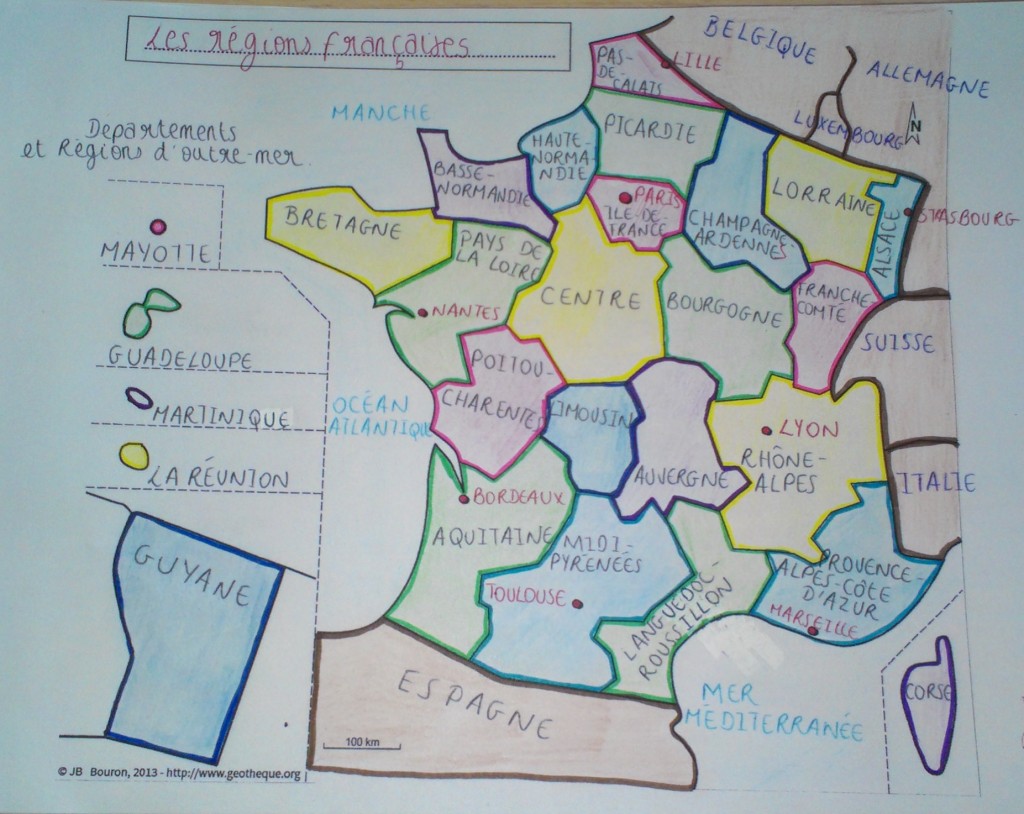 Les régions françaises
s
BELGIQUE
ALLEMAGNE
LUXEMBOURG
N
PAS-
DE-
CALAIS
LILLE
MANCHE
Départements
et Régions d'outre-mer.
PICARDIE
HAUTE-
NORMA-
NDIE
BASSE-
NORMANDIE
PARIS
ILE-DE-
FRANCE
CHAMPAGNE-
ARDENNES
LORRAINE
ALSACE
STRASBOURG
BRETAGNE
PAYS DE
LA LOIRE
NANTES
CENTRE
BOURGOGNE
FRANCHE
COMTÉ
SUISSE
MAYOTTE
GUADELOUPE
MARTINIQUE
LA RÉUNION
GUYANE
OCÉAN
ATLANTIQUE
POITOU-
CHARENTES
LIMOUSIN
AUVERGNE
LYON
RHÔNE-
ALPES
ITALIE
BORDEAUX
AQUITAINE
MIDI-
PYRENÉES
TOULOUSE
LANGUEDOC-
ROUSSILLON
PROVENCE-
ALPES-CÔTE
D'AZUR
MARSEILLE
ESPAGNE
MER
MÉDITERRANÉE
CORSE
100 km
© JB Bouron, 2013 - http://www.geotheque.org